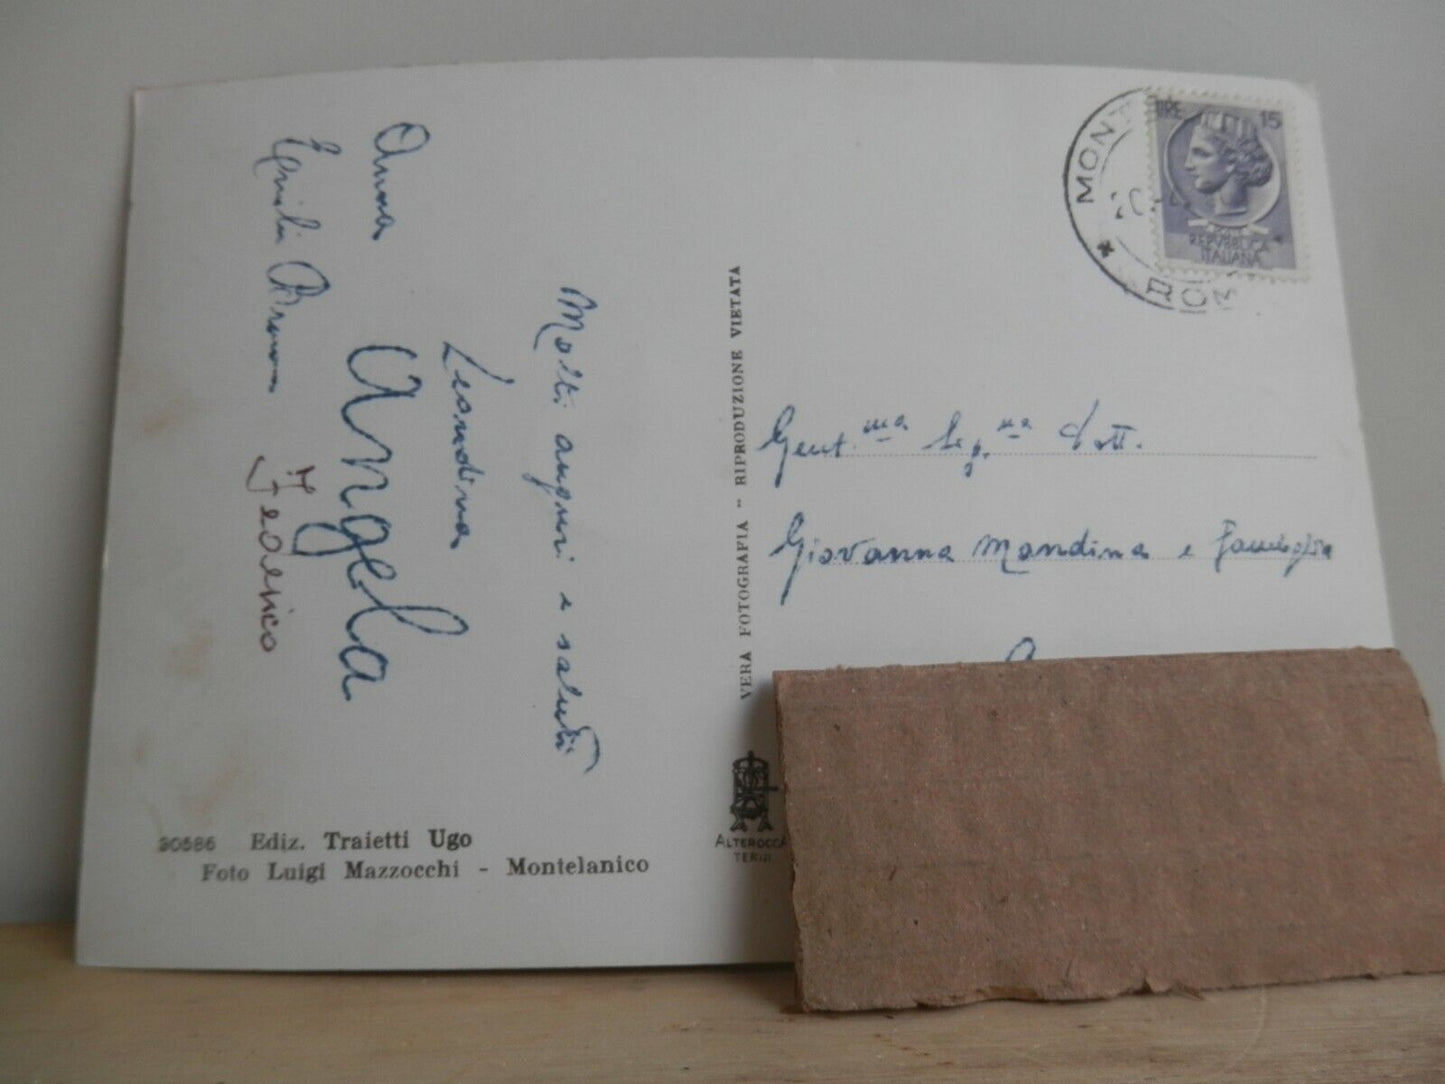 Molti auguri e saluti
Leondina
Anna Angela
Emilia Bruna Federico
30586 Ediz. Traietti Ugo
Foto Luigi Mazzocchi - Montelanico
VERA FOTOGRAFIA - RIPRODUZIONE VIETATA
ALTEROCCA
TERNI
MONT
ROMA
LIRE 15
REPVBBLICA
ITALIANA
Gent.ma Sig.na Dott.
Giovanna Mandina e Famiglia